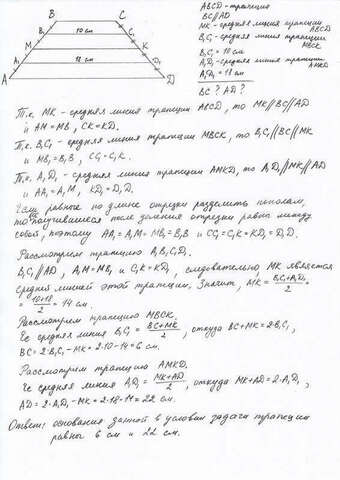 B C
B₁ 10 см C₁
M K
A₁ 18 см D₁
A D
ABCD - трапеция
BC∥AD
MK - средняя линия трапеции ABCD
B₁C₁ - средняя линия трапеции MBCK
B₁C₁ = 10 см
A₁D₁ - средняя линия трапеции AMKD
A₁D₁ = 18 см
BC? AD?
Т.к. MK - средняя линия трапеции ABCD, то MK∥BC∥AD
и AM=MB, CK=KD.
Т.к. B₁C₁ - средняя линия трапеции MBCK, то B₁C₁∥BC∥MK
и MB₁=B₁B, CC₁=C₁K.
Т.к. A₁D₁ - средняя линия трапеции AMKD, то A₁D₁∥MK∥AD
и AA₁=A₁M, KD₁=D₁D.
Если равные по длине отрезки разделить пополам,
то получившиеся после деления отрезки равны между
собой, поэтому AA₁=A₁M=MB₁=B₁B и CC₁=C₁K=KD₁=D₁D.
Рассмотрим трапецию A₁B₁C₁D₁.
B₁C₁∥AD, A₁M=MB₁ и C₁K=KD₁, следовательно, MK является
средней линией этой трапеции. Значит, MK = (B₁C₁+A₁D₁)/2 =
= (10+18)/2 = 14 см.
Рассмотрим трапецию MBCK.
Её средняя линия B₁C₁ = (BC+MK)/2, откуда BC+MK=2·B₁C₁,
BC=2·B₁C₁-MK=2·10-14=6 см.
Рассмотрим трапецию AMKD.
Её средняя линия A₁D₁ = (MK+AD)/2, откуда MK+AD=2·A₁D₁,
AD=2·A₁D₁-MK=2·18-14=22 см.
Ответ: основания данной в условии задачи трапеции
равны 6 см и 22 см.